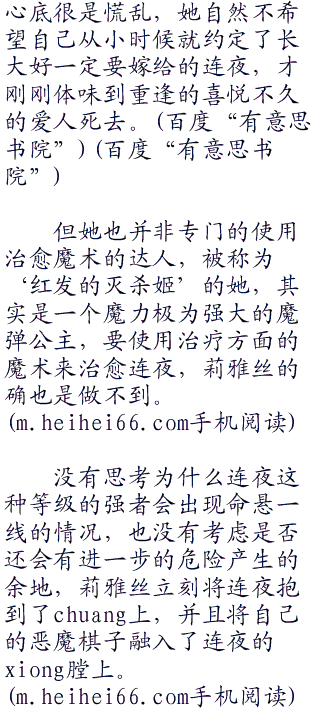 心底很是慌乱，她自然不希
望自己从小时候就约定了长
大好一定要嫁给的连夜，才
刚刚体味到重逢的喜悦不久
的爱人死去。(百度“有意思
书院”)(百度“有意思书
院”)
但她也并非专门的使用
治愈魔术的达人，被称为
‘红发的灭杀姬’的她，其
实是一个魔力极为强大的魔
弹公主，要使用治疗方面的
魔术来治愈连夜，莉雅丝的
确也是做不到。
(m.heihei66.com手机阅读)
没有思考为什么连夜这
种等级的强者会出现命悬一
线的情况，也没有考虑是否
还会有进一步的危险产生的
余地，莉雅丝立刻将连夜抱
到了chuang上，并且将自己
的恶魔棋子融入了连夜的
xiong膛上。
(m.heihei66.com手机阅读)